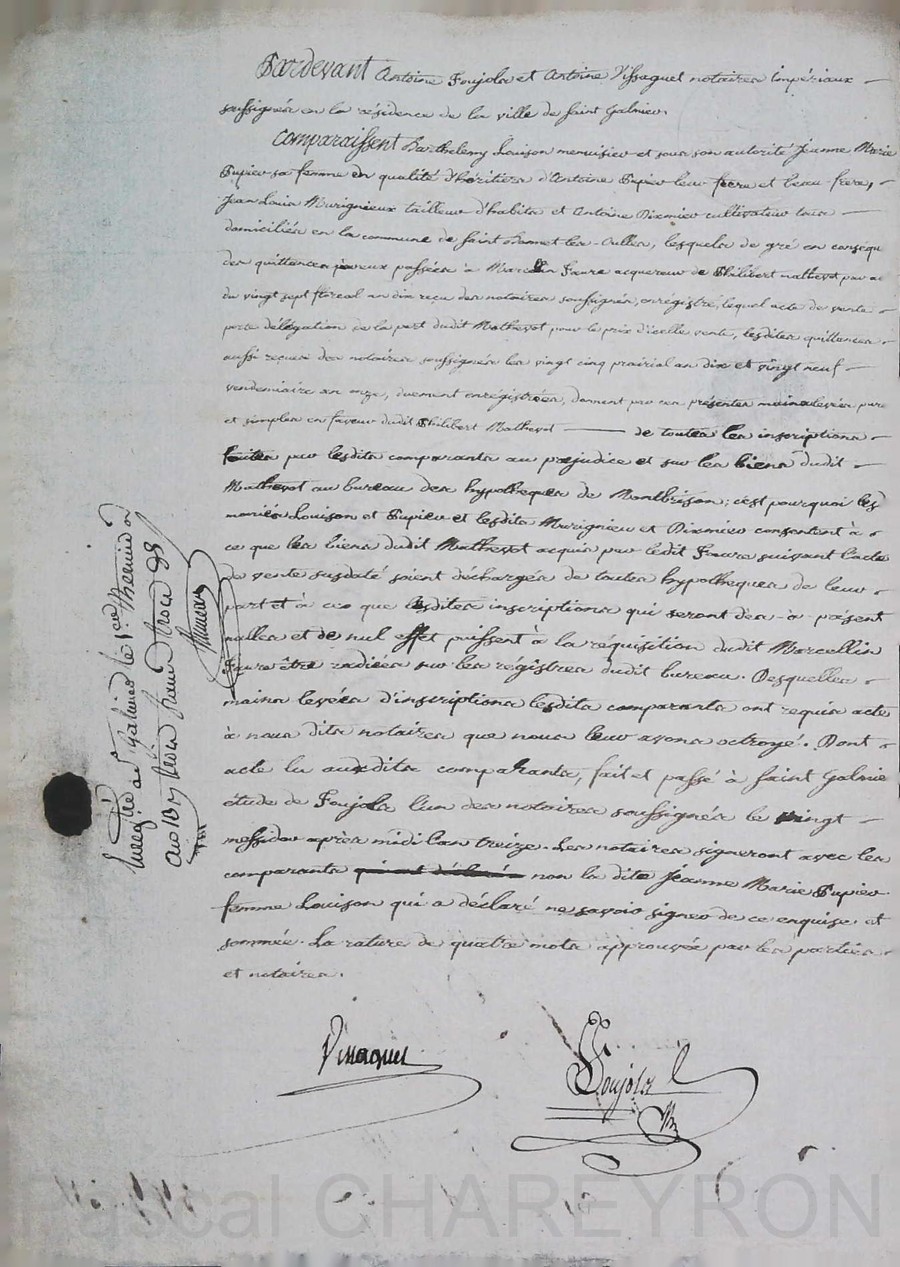 Pardevant Antoine Poujola et Antoine Vissaguet notaires impériaux
soussignés en la résidence de la ville de Saint Galmier.
Comparaissent Barthelemy Louison menuisier et sous son autorité Jeanne Marie
Pupier sa femme en qualité d'héritiers d'Antoine Pupier leur frere et beau-frere,
Jean Louis Murignieux tailleur d'habits et Antoine cultivateur tous
domiciliés en la commune de Saint Bonnet les-Oulles, lesquels de gré en conséqu
des quittances par eux passées à Marcellin Faure acquereur de Philibert Mathevot par ac
du vingt sept floreal an dix reçu des notaires soussignés, enrégistré, lequel acte de vente
porte délégation de la part dudit Mathevot, pour le prix d'icelle vente, lesdites quittances
aussi reçues des notaires soussignés les vingt cinq prairial an dix et vingt neuf
vendemiaire an onze, duement enrégistrées, donnent par ces présentes mainslevées pure
et simples en faveur dudit Philibert Mathevot de toutes les inscriptions
faites par lesdits comparants au préjudice et sur les biens dudit
Mathevot au bureau des hypotheques de Montbrison; c'est pourquoi les
mariés Louison et Pupier et lesdits Murignieu et consentent à
ce que les biens dudit Mathevot acquis par ledit Faure suivant l'acte
de vente susdaté soient déchargés de toutes hypotheques de leur
part et à ce que lesdites inscriptions qui seront dès-à-présent
nulles et de nul effet puissent à la réquisition dudit Marcellin
Faure être radiées sur les régistres dudit bureau. Desquelles
mains levées d'inscriptions lesdits comparants ont requis acte
à nous dits notaires que nous leur avons octroyé. Dont
acte lu auxdits comparants, fait et passé à Saint Galmie
étude de Poujola l'un des notaires soussignés le vingt
messidor après midi l'an treize. Les notaires signeront avec les
comparants non la dite Jeanne Marie Pupier
femme Louison qui a déclaré ne savoir signer de ce enquise et
sommée. La rature de quatre mots approuvée par les parties
et notaires.
Enregistré a St Galmier le 1er Thermidor
an 13
Vissaguet
Poujola
Pascal CHAREYRON